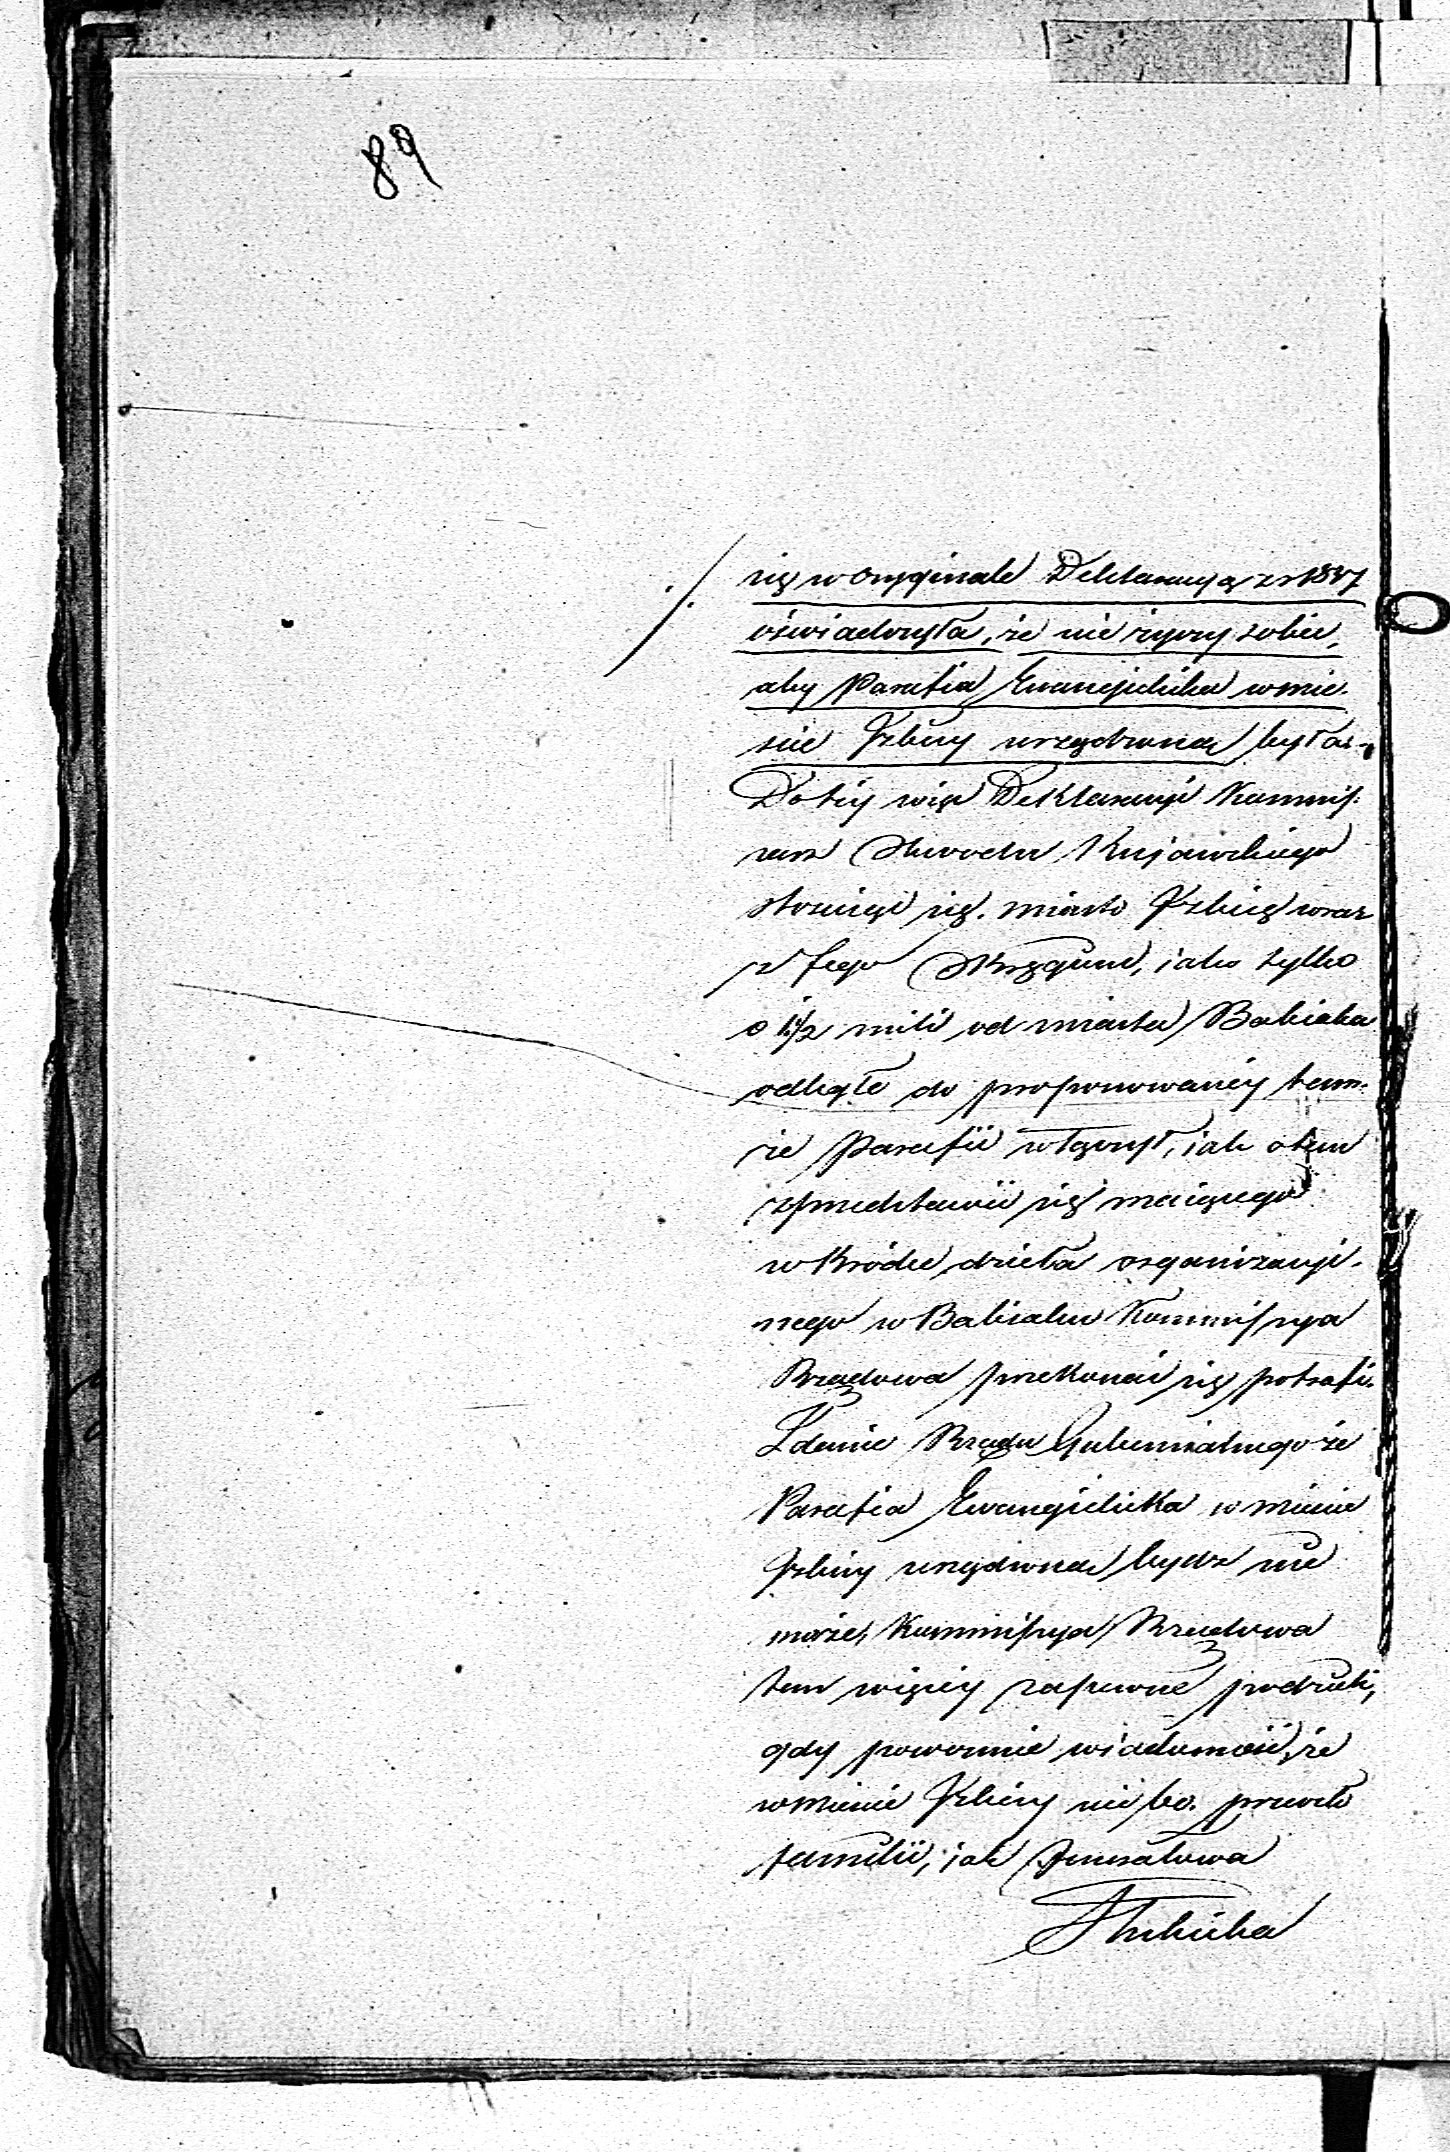 89
się w oryginale Deklaracyą z r 1847
oświadczyła, że nie życzy sobie,
aby Parafia Ewangielicka w mie-
ście Izbicy urządzona była.-
Do téy więc Deklaracyi Kommis-
sarz Obwodu Kujawskiego
stosuiąc się. miasto Izbicę wraz
z Jego Okręgiem, iako tylko
o 1 1/2 mili od miasta Babiaka
odległe do proponowanéy tam-
że Parafii włączył, iak o tem
z przedstawić się maiącego
w krótce dzieła organizacyi-
nego w Babiaku Kommissya
Rządowa przekonać się potrafi.
Zdanie Rządu Gubernialnego że
Parafia Ewangielicka w mieście
Izbicy urządzona bydz nie
może, Kommissya Rządowa
tem więcéy zapewne podzieli,
gdy poweźmie wiadomość, że
w mieście Izbicy nie ma
familii, iak Jeneralowa